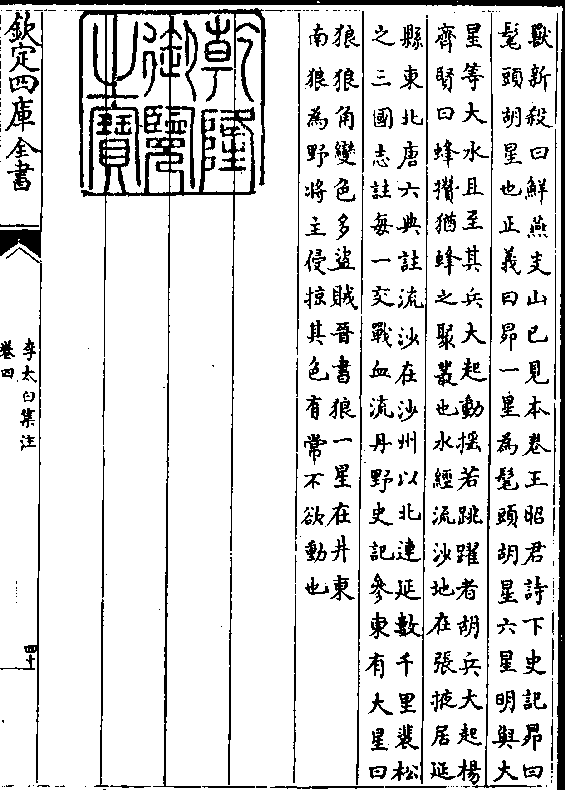 獸新殺曰鮮燕支山已見本卷王昭君詩下史記昴曰
髦頭胡星也正義曰昴一星為髦頭胡星六星明與大
星等大水且至其兵大起動揺若跳躍者胡兵大起楊
齊賢曰蜂攢猶蜂之聚叢也水經流沙地在張掖居延
縣東北唐六典註流沙在沙州以北連延數千里裴松
之三國志註每一交戰血流丹野史記參東有大星曰
狼狼角變色多盜賊晉書狼一星在井東
南狼為野將主侵掠其色有常不欲動也
乾隆
御覽
之寶
欽定四庫全書
李太白集注
卷四
四十